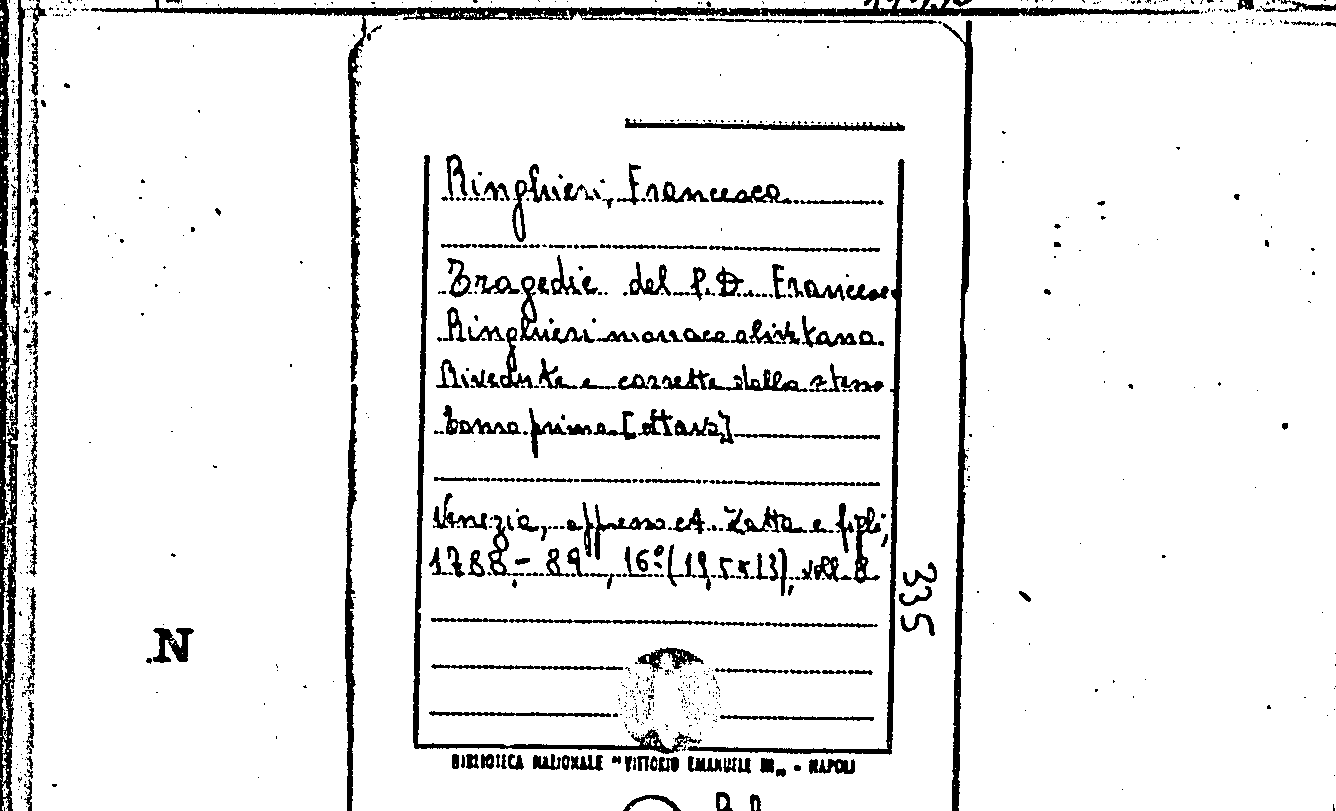 Ringhieri, Francesco
Tragedie del P. D. Francesco
Ringhieri monaco olivetano.
Rivedute e corrette dallo stesso.
Tomo primo [ottavo]
Venezia, appresso A. Zatta e figli,
1788-89, 16º (19,5 x 13), voll. 8.
335
N
BIBLIOTECA NAZIONALE "VITTORIO EMANUELE III" - NAPOLI